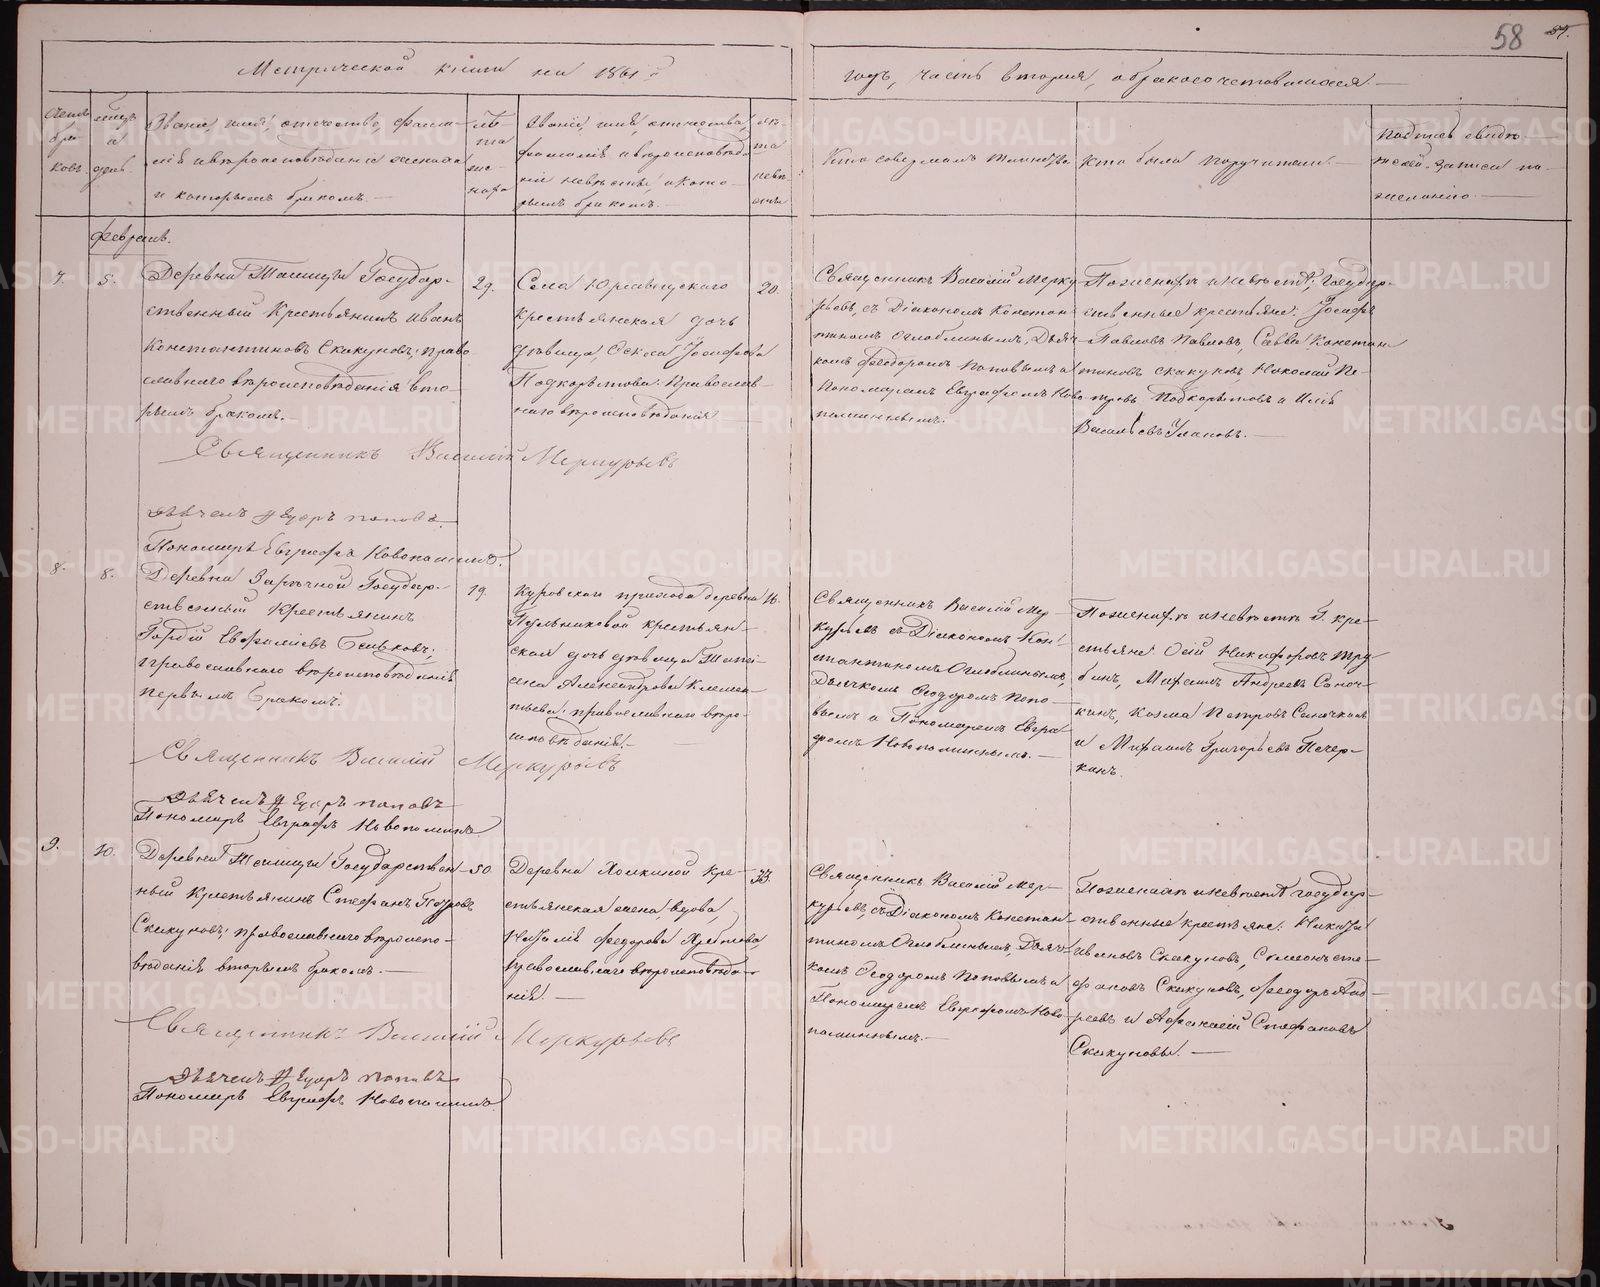 58
Метрической книги на 1861й
годъ, часть вторая, о бракосочетавшихся.
Счетъ бра ковъ.
Мѣсяцъ и день.
Званіе, имя, отчество, фами-
лія и вѣроисповѣданіе жениха
и которымъ бракомъ.
лѣ
та
же-
ниха
Званіе, имя, отчество,
фамилія и вѣроисповѣда
ніе невѣсты, и кото-
рымъ бракомъ.
лѣ-
та
невѣ
сты
Кто совершалъ таинство
Кто были поручители.
Подпись свидѣ-
телей записи по
желанію.
Февраль.
7.
5.
Деревни Ташицы Государ-
ственный Крестьянинъ Иванъ
Константиновъ Скакуновъ; право
славнаго вѣроисповѣданія вто-
рымъ бракомъ.
29.
Села
крестьянская дочь
дѣвица,
Подкорытова. Православ-
наго вѣроисповѣданія
20.
Священникъ Василій Мерку
рьевъ, съ Діакономъ Констан
тиномъ Оглоблинымъ, Дьяч-
комъ Феодоромъ Поповымъ и
Пономаремъ Евграфомъ Ново
пашиннымъ.
По женихѣ и невѣстѣ; Государ-
ственные крестьяне: Іосифъ
Павловъ Павловъ, Савва Констан
тиновъ Скакуновъ, Николай Пе-
тровъ Подкорытовъ и Илія
Васильевъ Улановъ.
Священникъ Василій Меркурьевъ
Дьячекъ Ѳедоръ Поповъ.
Пономарь Евграфъ Новопашинъ.
8.
8.
Деревни Зарѣчной Государ-
ственный Крестьянинъ
Гордій Евфиміевъ
православнаго вѣроисповѣданія
первымъ бракомъ.
19.
Куровскаго прихода деревни
Пульниковой крестьян-
ская дочь дѣвица Тати-
ана Александрова Клемен-
тьева: православнаго вѣро-
исповѣданія.
Священникъ Василій Мер-
курьевъ съ Діакономъ Кон-
стантиномъ Оглоблинымъ,
Дьячкомъ Ѳеодоромъ Попо-
вымъ и Пономаремъ Евгра
фомъ Новопашиннымъ.
По женихѣ и невѣстѣ Г. кре-
стьяне Осій Никифоровъ Тру
бинъ, Михаилъ Андреевъ Санач-
кинъ, Козма Петровъ Саначкинъ
и Михаилъ Григорьевъ Печер-
кинъ.
Священникъ Василій Меркурьевъ
Дьячекъ Ѳедоръ Поповъ
Пономарь Евграфъ Новопашинъ
9.
10.
Деревни Ташицы Государствен-
ный Крестьянинъ Стефанъ Петровъ
Скакуновъ; православнаго вѣроиспо-
вѣданія вторымъ бракомъ.
50.
Деревни Холкиной кре-
стьянская жена вдова,
Наталія Федорова
православнаго вѣроисповѣда-
нія.
33.
Священникъ Василій Мер-
курьевъ, съ Діакономъ Констан
тиномъ Оглоблинымъ, Дьяч-
комъ Ѳеодоромъ Поповымъ и
Пономаремъ Евграфомъ Ново
пашиннымъ.
По женихѣ и невѣстѣ Государ-
ственные крестьяне: Никита
Ивановъ Скакуновъ, Симеонъ Сте-
фановъ Скакуновъ, Феодоръ Анд-
реевъ и Афанасій Стефановъ
Скакуновы.
Священникъ Василій Меркурьевъ
Дьячекъ Ѳедоръ Поповъ
Пономарь Евграфъ Новопашинъ
METRIKI.GASO-URAL.RU